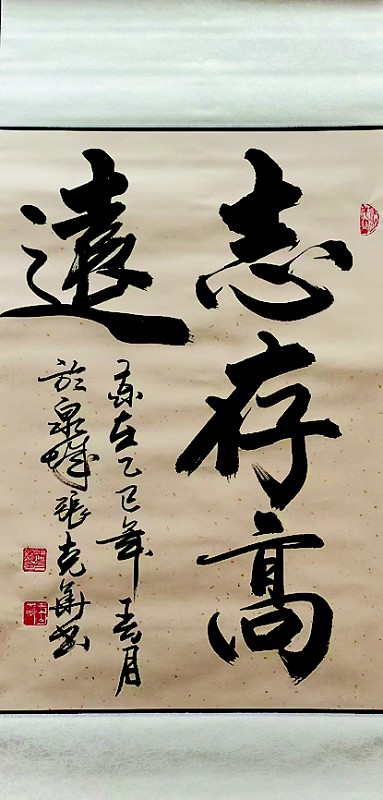 志存高
遠
歲在乙巳年春月
於泉城張克華書